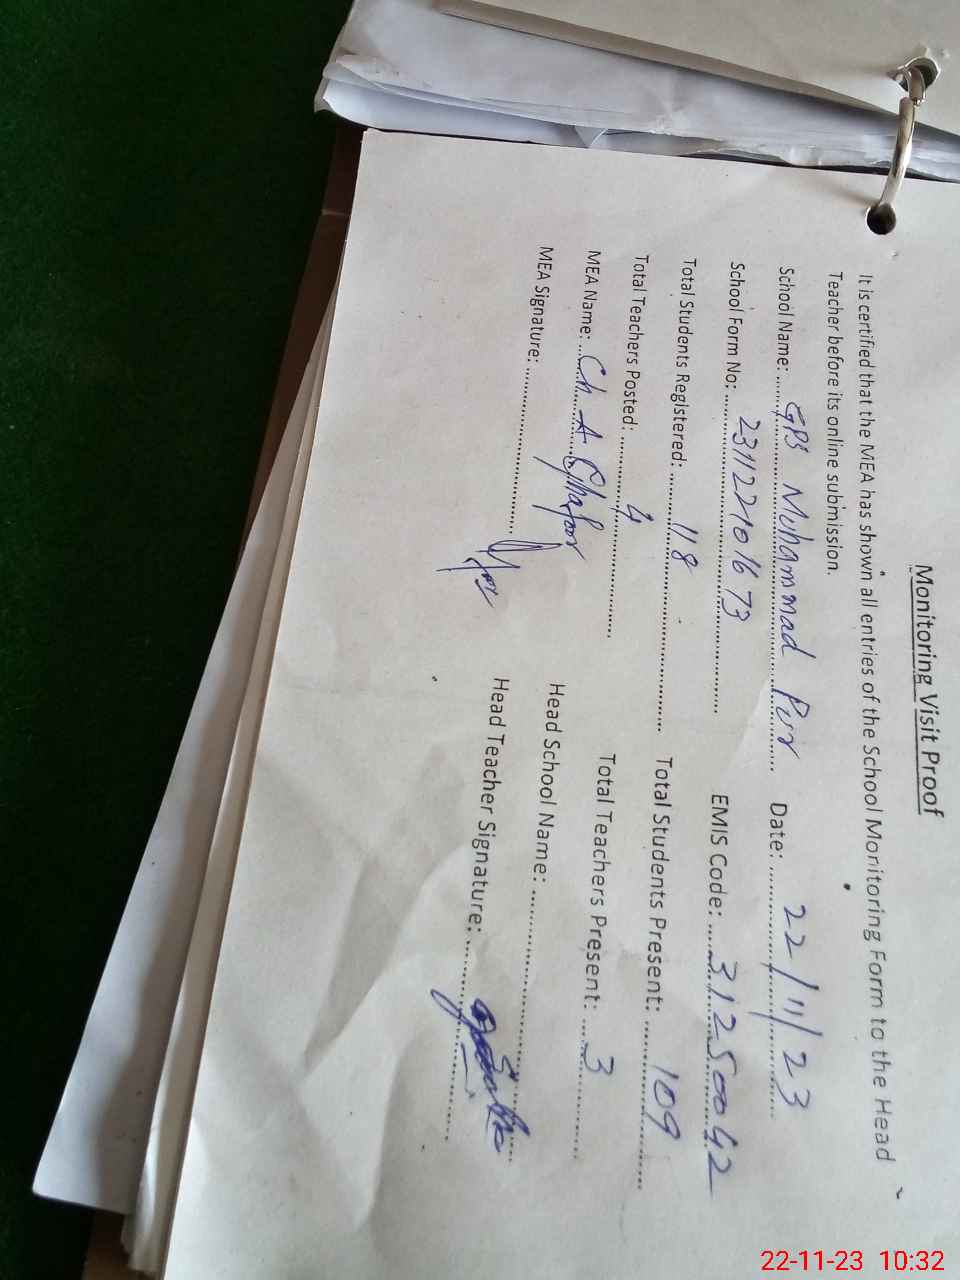 Monitoring Visit Proof
It is certified that the MEA has shown all entries of the School Monitoring Form to the Head
Teacher before its online submission.
School Name: GPS Muhammad Pur Date: 22/11/23
School Form No: 231122101673 EMIS Code: 31250042
Total Students Registered: 118 Total Students Present: 109
Total Teachers Posted: 4 Total Teachers Present: 3
MEA Name: Ch A Ghafoor Head School Name:
MEA Signature: Head Teacher Signature:
22-11-23 10:32